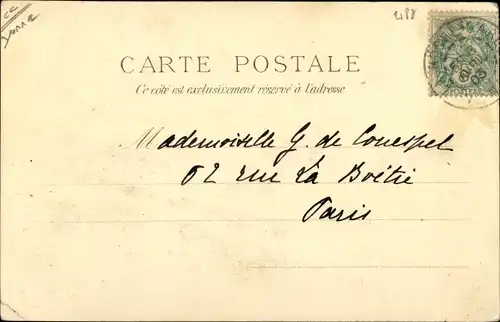 Yonne
CARTE POSTALE
Ce côté est exclusivement réservé à l'adresse
Mademoiselle G. de Couespel
52 rue La Boëtie
Paris